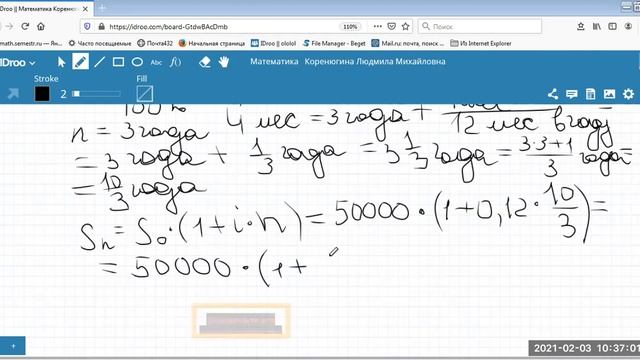 IDroo || Математика Коренюгин
https://idroo.com/board-GtdwBAcDmb
110%
Поиск
math.semestr.ru
Часто посещаемые
Почта432
Начальная страница
IDroo || ololol
File Manager - Beget
Mail.ru: почта, поиск ...
Из Internet Explorer
IDroo
Математика Коренюгина Людмила Михайловна
Stroke
Fill
2
Abc
f()
100%
n = 3 года 4 мес = 3 года + 12 мес в году
= 3 года + 1/3 года = 3 1/3 года = (3·3+1)/3 года =
= 10/3 года
Sn = S0·(1+i·n) = 50000·(1+0,12·10/3) =
= 50000·(1+
+
2021-02-03 10:37:01